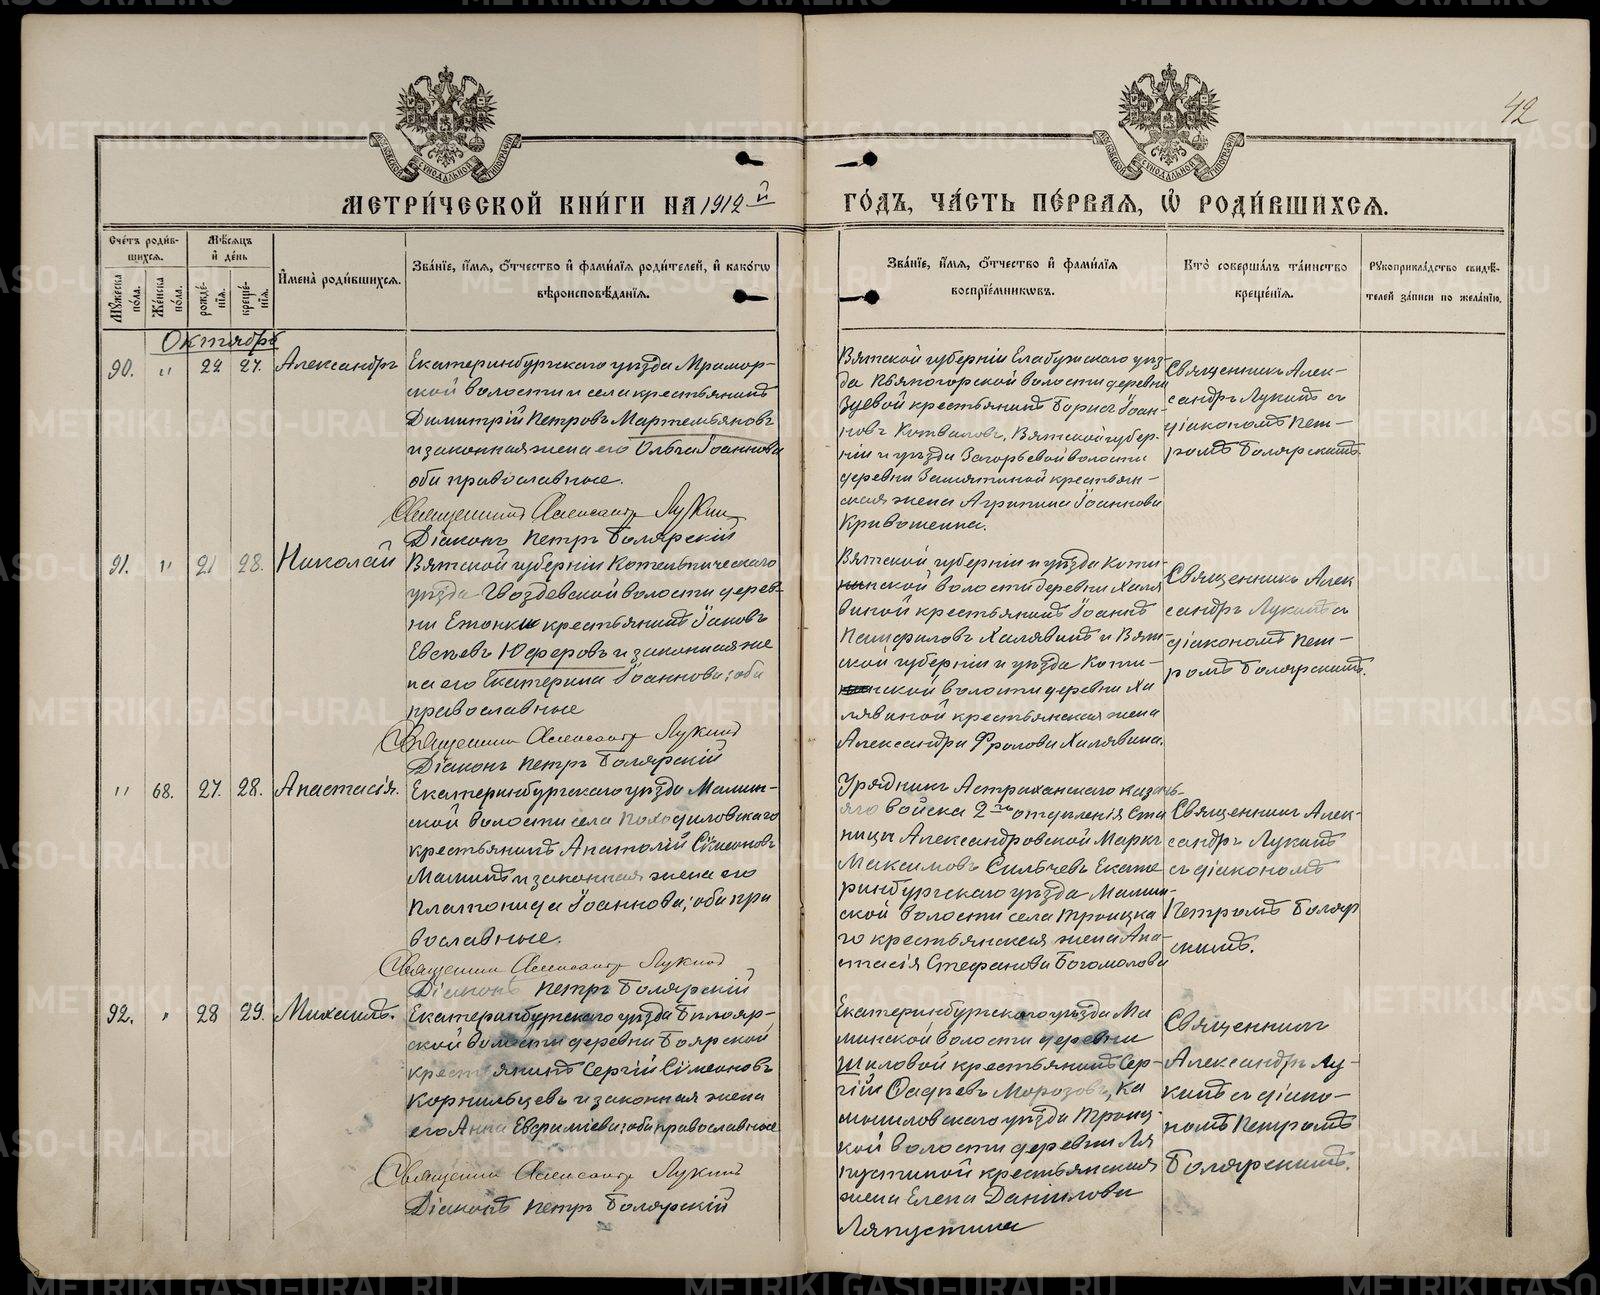 42
МЕТРИ́ЧЕСКОЙ КНИ́ГИ НА 1912й
ГО́ДЪ, ЧА́СТЬ ПЕ́РВАЯ, Ѡ҆ РОДИ́ВШИХСЯ.
Сче́тъ роди́в-
шихся.
Му́жеска по́ла.
Же́нска по́ла.
Мѣ́сяцъ
и҆ де́нь
рожде́-
нія.
креще́-
нія.
И҆мена̀ роди́вшихся.
Зва́ніе, и҆́мя, ѻ҆́тчество и҆ фами́лія роди́телей, и҆ како́гѡ
вѣроисповѣ́данія.
Зва́ніе, и҆́мя, ѻ҆́тчество и҆ фами́лія
воспріе́мниковъ.
Кто̀ соверша́лъ та́инство
креще́нія.
Рукоприкла́дство свидѣ́-
телей за́писи по жела́нію.
Октябрь
90. " 22 27. Александръ
Екатеринбургскаго уѣзда Мрамор-
ской волости и села крестьянинъ
Димитрій Петровъ Мартемьяновъ
и законная жена его Ольга Іоаннова
оба православные.
Священникъ Александръ Лукинъ
Діаконъ Петръ Боляр­скій
Вятской губерніи Елабужскаго уѣз-
да Пьяногорской волости деревни
Зуевой крестьянинъ Борисъ Іоан-
новъ Вятской губер-
ніи и уѣзда Загорьевой волости
деревни Замятиной крестьян-
ская жена Агрипина Іоаннова
Кривошеина.
Священникъ Алек-
сандръ Лукинъ съ
діакономъ Пет-
ромъ Болярскимъ.
91. " 21 28. Николай
Вятской губерніи Котельническаго
уѣзда Гвоздевской волости дерев-
ни крестьянинъ Іаковъ
Евсѣевъ Юферовъ и законная же
на его Екатерина Іоаннова; оба
православные
Священникъ Александръ Лукинъ
Діаконъ Петръ Болярскій
Вятской губерніи и уѣзда
волости деревни Халя
виной крестьянинъ Іоаннъ
Памфиловъ Халявинъ и Вят-
ской губерніи и уѣзда
волости деревни Ха
лявиной крестьянская жена
Александра Фролова Халявина.
Священникъ Алек
сандръ Лукинъ съ
діакономъ Пет-
ромъ Болярскимъ.
" 68. 27. 28. Анастасія.
Екатеринбургскаго уѣзда Мамин-
ской волости села Походиловскаго
крестьянинъ Анатолій Сімеоновъ
Маминъ и законная жена его
Платонида Іоаннова; оба пра
вославные.
Священникъ Александръ Лукинъ
Діаконъ Петръ Болярскій
Урядникъ Астраханскаго казачь-
яго войска 2го отдѣленія Ста
ницы Александровской Маркъ
Максимовъ Сильчевъ Екате
ринбургскаго уѣзда Мамин-
ской волости села Троицка
го крестьянская жена Ана-
стасія Стефанова Богомолова
Священникъ Алек-
сандръ Лукинъ
съ діакономъ
Петромъ Боляр
скимъ.
92. " 28 29. Михаилъ.
Екатеринбургскаго уѣзда Бѣлояр-
ской волости деревни Боярской
крестьянинъ Сергій Сімеоновъ
Корнильцевъ и законная жена
его Анна Евфиміева; оба православные
Священникъ Александръ Лукинъ
Діаконъ Петръ Болярскій
Екатеринбургскаго уѣзда Ма
минской волости деревни
Шиловой крестьянинъ Сер-
гій Фадѣевъ Морозовъ, Ка
мышловскаго уѣзда Троиц-
кой волости деревни Ля
пустиной крестьянская
жена Елена Даніилова
Ляпустина
Священникъ
Александръ Лу-
кинъ съ діако-
номъ Петромъ
Болярскимъ.
METRIKI.GASO-URAL.RU